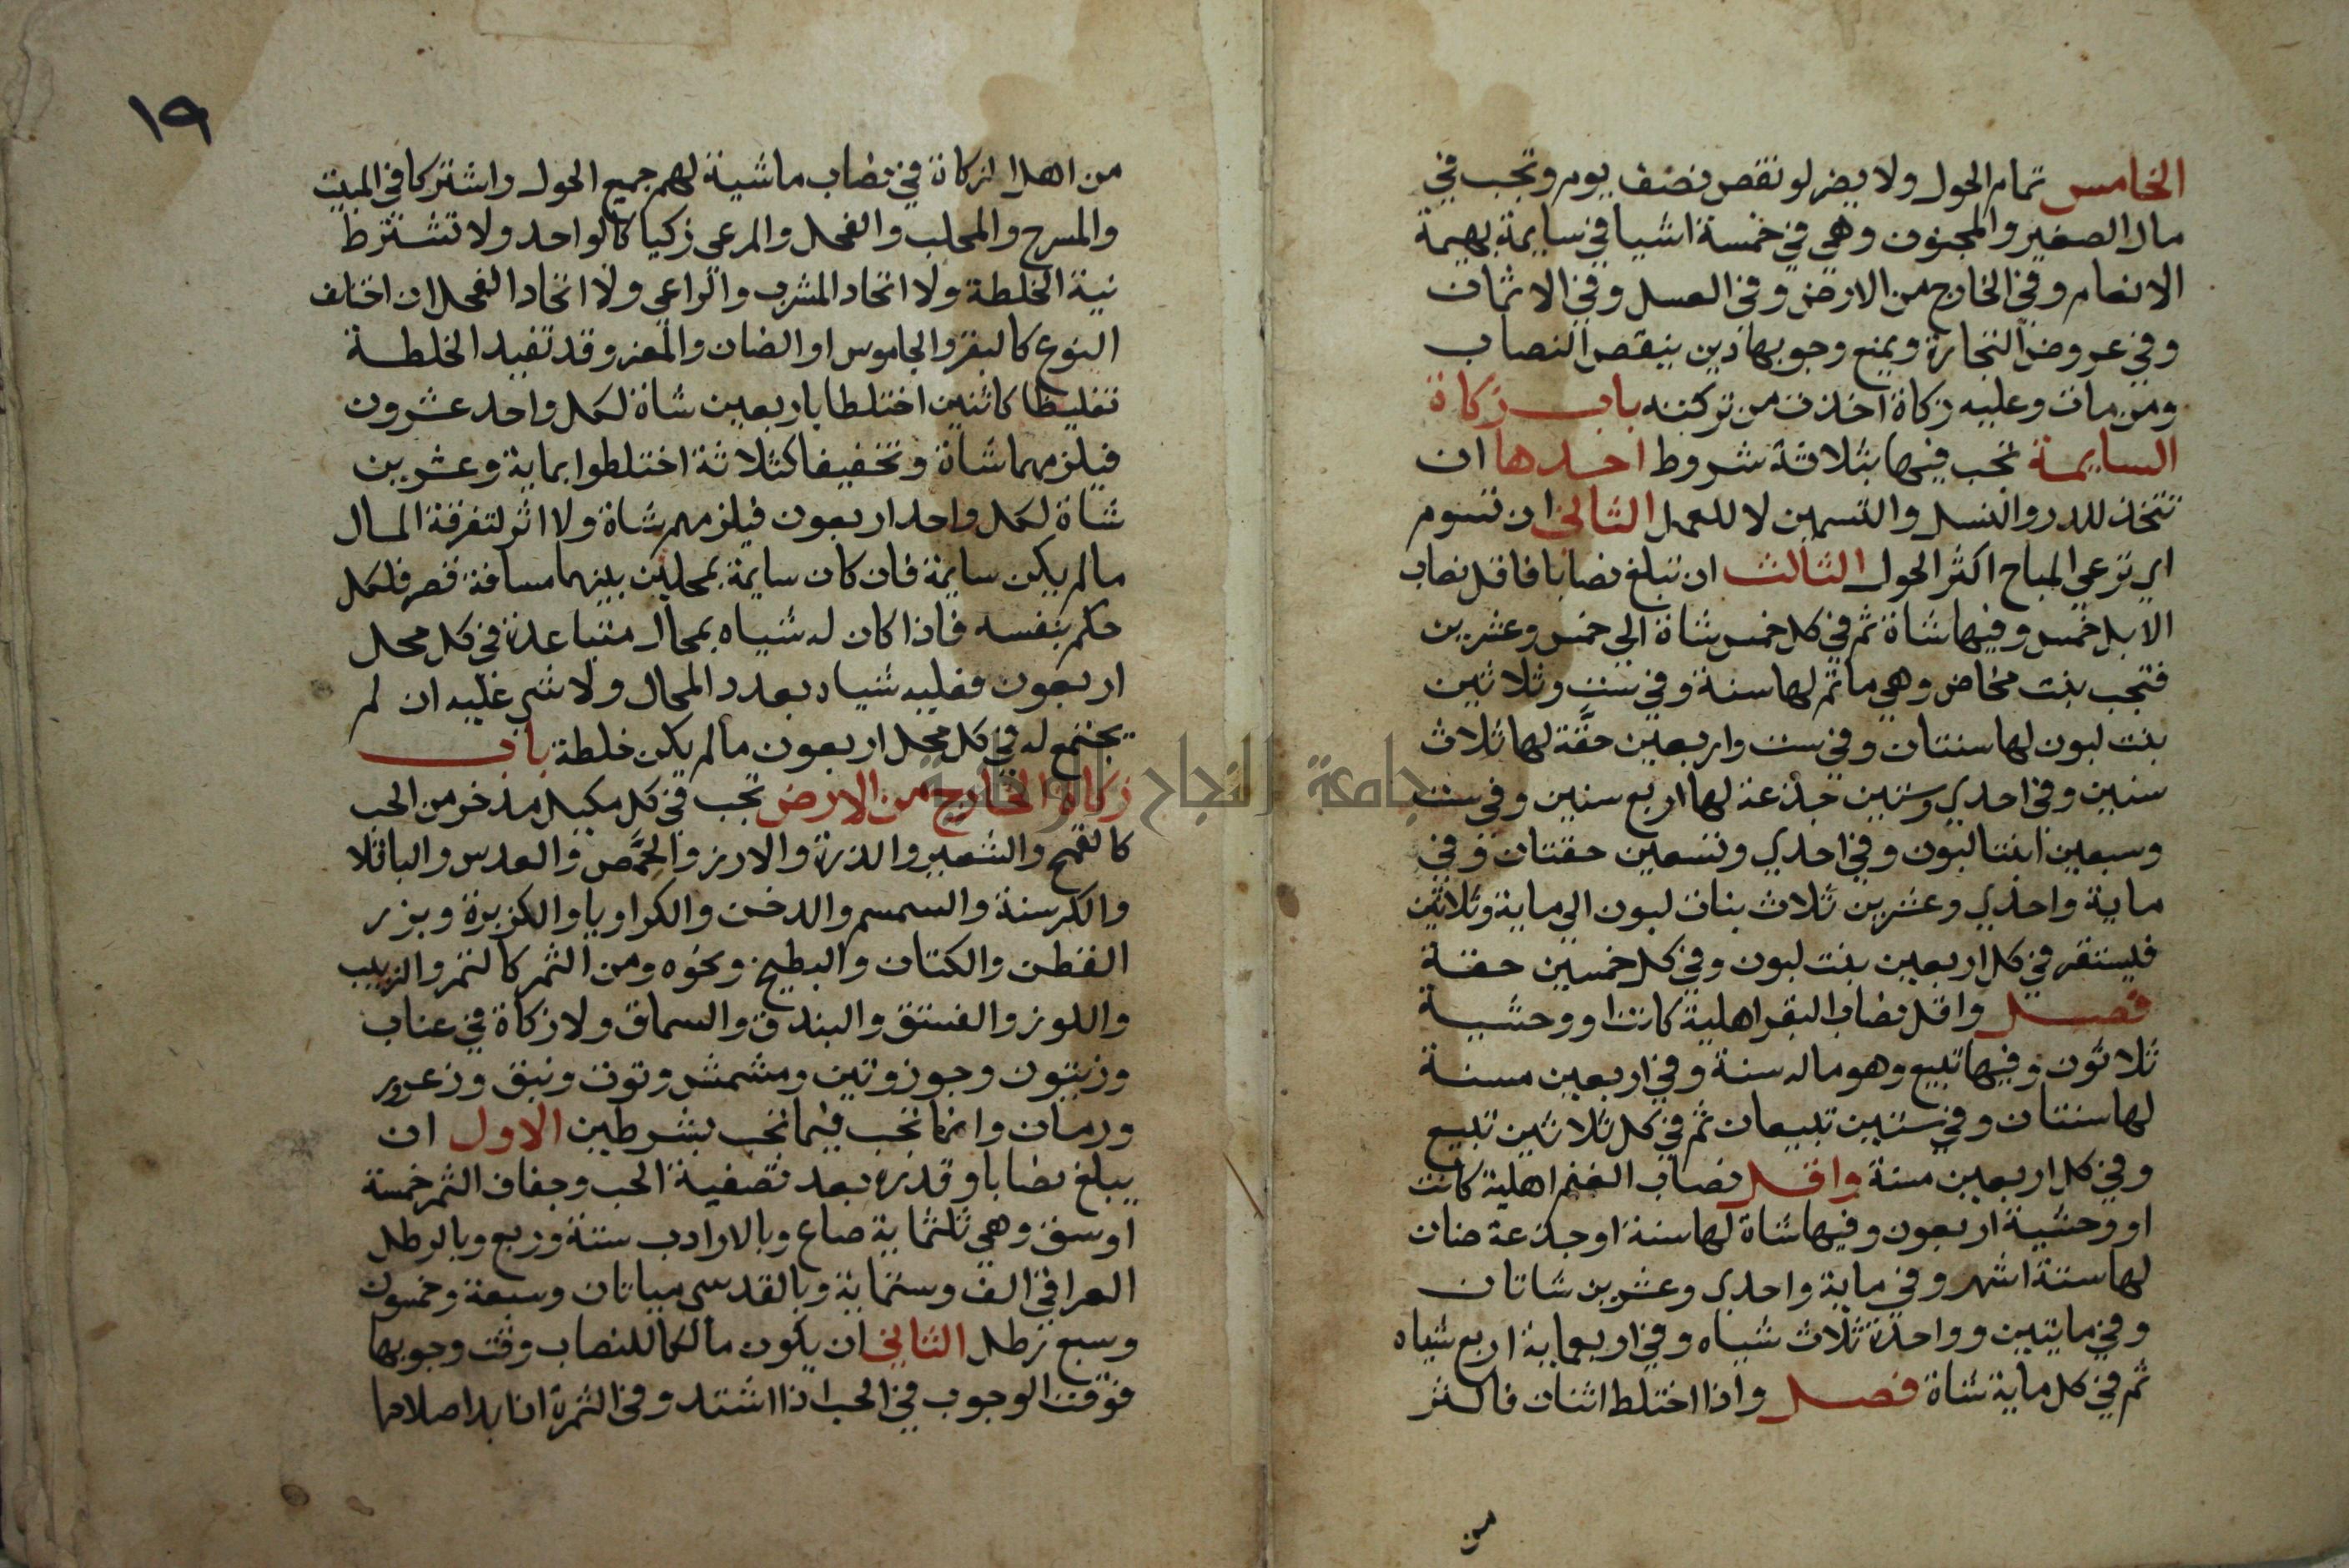 الخامس تمام الحول ولا يضر لو نقص نصف يوم وتجب في
مال الصغير والمجنون وهي في خمسة اشيا في سايمة بهيمة
الانعام وفي الخارج من الارض وفي العسل وفي الاثمان
وفي عروض التجارة ويمنع وجوبها دين ينقص النصاب
ومن مات وعليه زكاة اخذت من تركته باب زكاة
السايمة تجب فيها بثلاثة شروط احدها ان
تتخذ للدر والنسل والتسمين لا للعمل الثاني ان تسوم
اي ترعى المباح اكثر الحول الثالث ان تبلغ نصابا فاقل نصاب
الابل خمس وفيها شاة ثم في كل خمس شاة الي خمس وعشرين
فتجب بنت مخاض وهي ما تم لها سنة وفي ست وثلاثين
بنت لبون لها سنتان وفي ست واربعين حقَّة لها ثلاث
سنين وفي احدي وستين جذعة لها اربع سنين وفي ست
وسبعين ابنتا لبون وفي احدي وتسعين حقتان وفي
ماية واحدي وعشرين ثلاث بنات لبون الي ماية وثلاثين
فيستقر في كل اربعين بنت لبون وفي كل خمسين حقة
فصل واقل نصاب البقر اهلية كانت او وحشية
ثلاثون وفيها تبيع وهو ماله سنة وفي اربعين مسنة
لها سنتان وفي ستين تبيعان ثم في كل ثلاثين تبيع
وفي كل اربعين مسنة واقل نصاب الغنم اهلية كانت
او وحشية اربعون وفيها شاة لها سنة او جذعة ضان
لها ستة اشهر وفي ماية واحدي وعشرين شاتان
وفي مايتين وواحدة ثلاث شياه وفي اربعماية اربع شياه
ثم في كل ماية شاة فصل واذا اختلط اثنان فاكثر
من
١٩
من اهل الزكاة في نصاب ماشية لهم جميع الحول واشتركا في المبيت
والمسرح والمحلب والفحل والمرعى زكيا كالواحد ولا تشترط
نية الخلطة ولا اتحاد المشرب والراعي ولا اتحاد الفحل ان اختلف
النوع كالبقر والجاموس او الضان والمعز وقد تفيد الخلطة
تغليظا كاثنين اختلطا باربعين شاة لكل واحد عشرون
فيلزمهما شاة وتخفيفا كثلاثة اختلطوا بماية وعشرين
شاة لكل واحد اربعون فيلزمهم شاة ولا اثر لتفرقة المال
مالم يكن سايمة فان كان سايمة بمحلين بينهما مسافة قصر فلكل
حكم بنفسه فاذا كان له شياه بمحال متباعدة في كل محل
اربعون فعليه شياه بعدد المحال ولا شي عليه ان لم
يجتمع له في كل محل اربعون مالم يكن خلطة باب
زكاة الخارج من الارض تجب في كل مكيل مدخر من الحب
كالقمح والشعير والذرة والارز والحمَّص والعدس والباقلا
والكرسنة والسمسم والدخن والكراويا والكزبرة وبزر
القطن والكتان والبطيخ ونحوه ومن الثمر كالتمر والزبيب
واللوز والفستق والبندق والسماق ولا زكاة في عناب
وزيتون وجوز وتين ومشمش وتوت ونبق وزعرور
ورمان وانما تجب فيما تجب بشرطين الاول ان
يبلغ نصابا وقدره بعد تصفية الحب وجفاف الثمر خمسة
اوسق وهي ثلثماية صاع وبالارادب ستة وربع وبالرطل
العراقي الف وستماية وبالقدسي مياتان وسبعة وخمسون
وسبع رطل الثاني ان يكون مالكا للنصاب وقت وجوبها
فوقت الوجوب في الحب اذا اشتد وفي الثمرة اذا بدا صلاحها
جامعة النجاح الوطنية